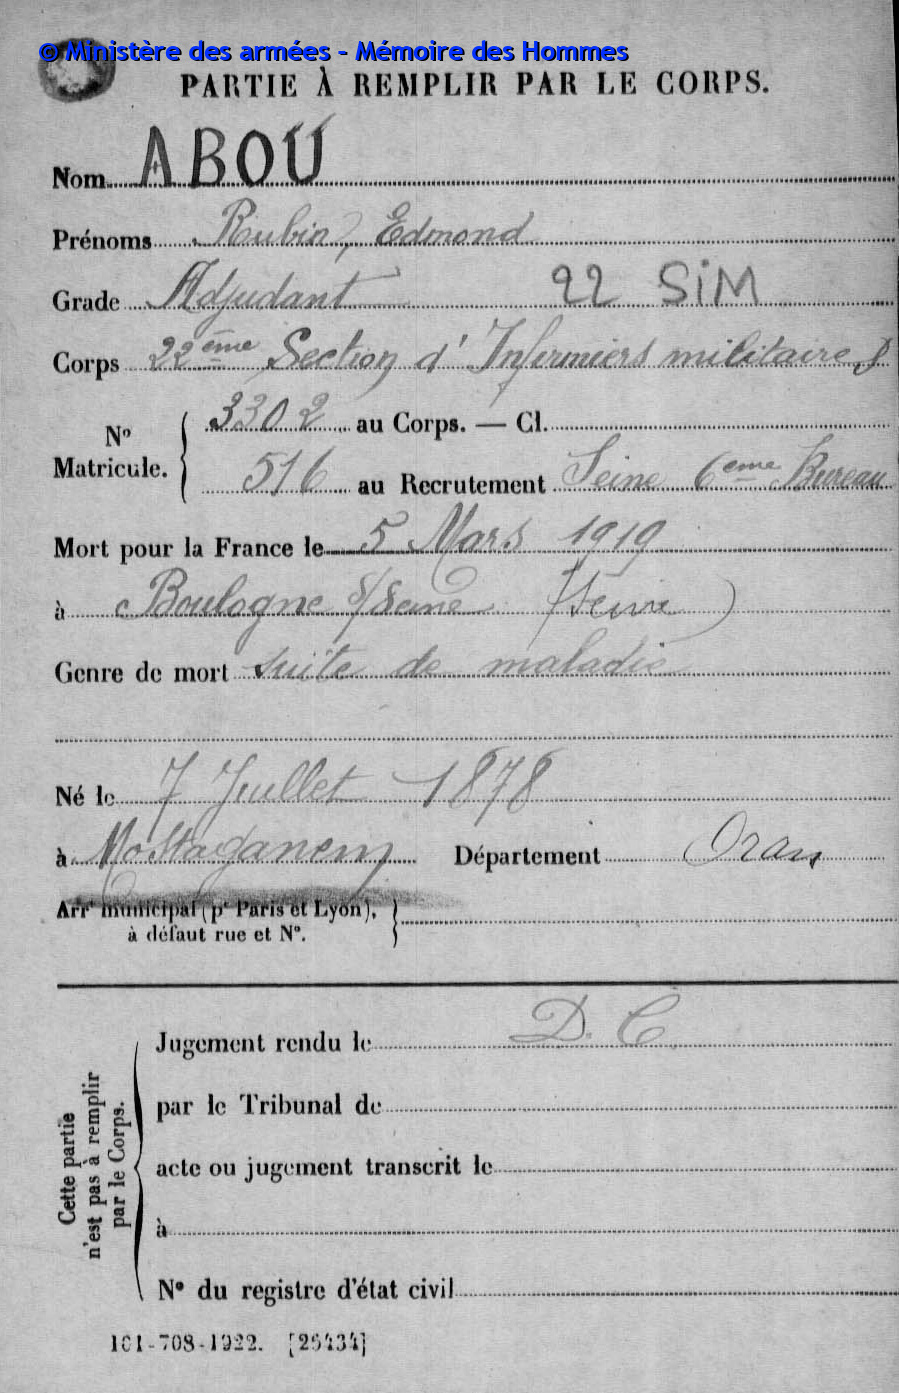 © Ministère des armées - Mémoire des Hommes
PARTIE À REMPLIR PAR LE CORPS.
Nom ABOU
Prénoms Rubin, Edmond
Grade Adjudant 22 SIM
Corps 22ème Section d'Infirmiers militaires
3302 au Corps. — Cl.
No Matricule.
516 au Recrutement Seine 6eme Bureau
Mort pour la France le 5 Mars 1919
à Boulogne s/Seine (Seine)
Genre de mort suite de maladie
Né le 7 Juillet 1878
à Mostaganem Département Oran
Arrt municipal (pr Paris et Lyon),
à défaut rue et N°.
D. C
Jugement rendu le
par le Tribunal de
acte ou jugement transcrit le
à
N° du registre d'état civil
Cette partie
n'est pas à remplir
par le Corps.
101-708-1922. [26434]